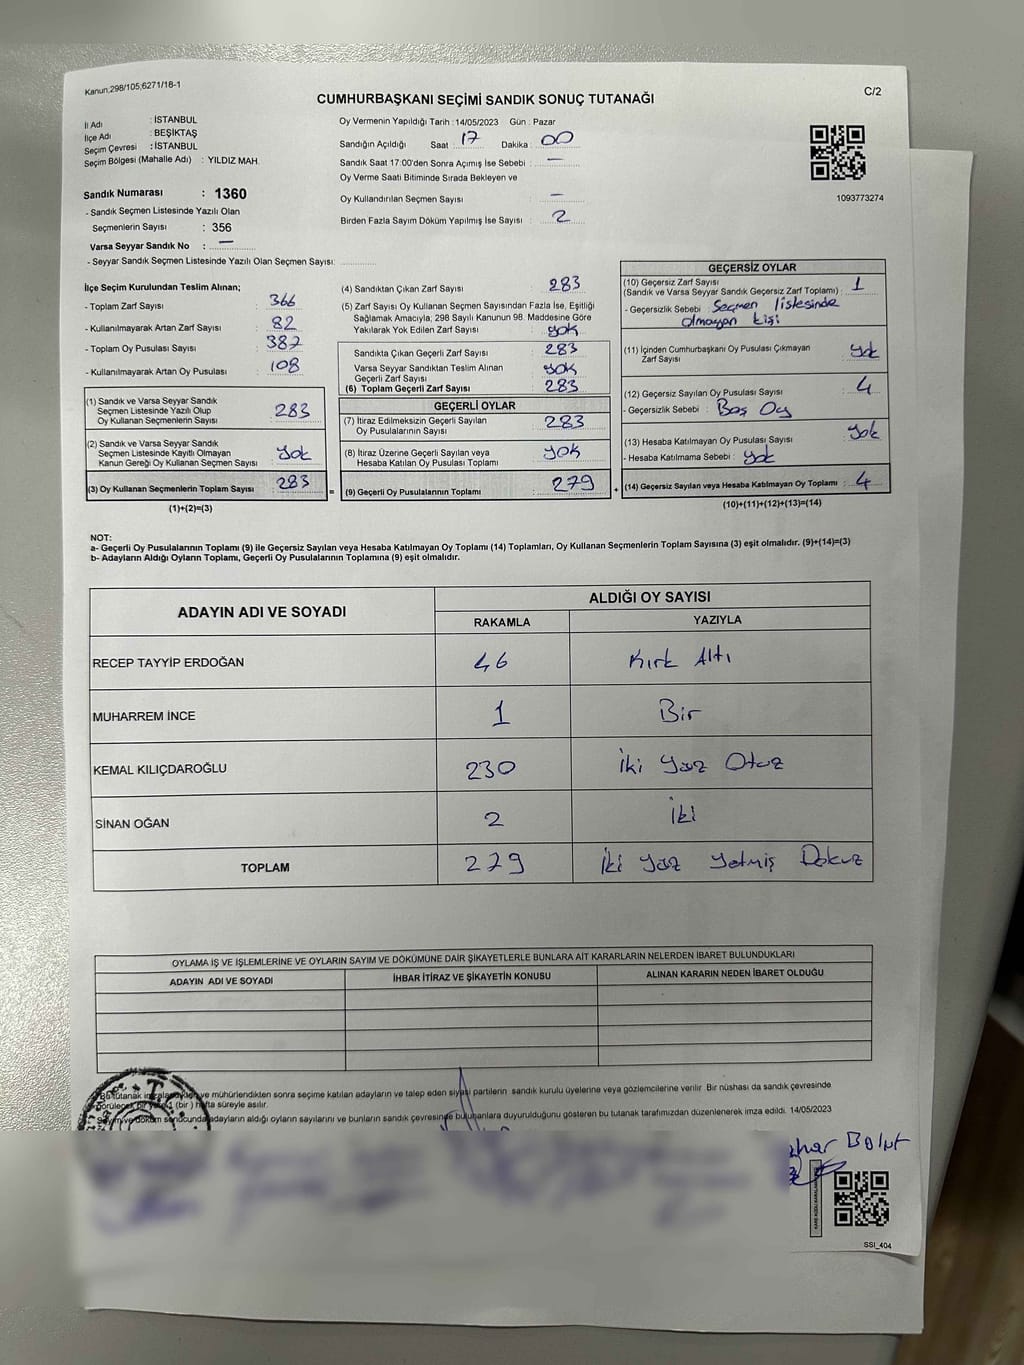 Kanun.298/105;6271/18-1
C/2
CUMHURBAŞKANI SEÇİMİ SANDIK SONUÇ TUTANAĞI
İl Adı : İSTANBUL
İlçe Adı : BEŞİKTAŞ
Seçim Çevresi : İSTANBUL
Seçim Bölgesi (Mahalle Adı) : YILDIZ MAH.
Sandık Numarası : 1360
- Sandık Seçmen Listesinde Yazılı Olan
Seçmenlerin Sayısı : 356
Varsa Seyyar Sandık No : —
- Seyyar Sandık Seçmen Listesinde Yazılı Olan Seçmen Sayısı:
Oy Vermenin Yapıldığı Tarih : 14/05/2023 Gün : Pazar
Sandığın Açıldığı Saat : 17 Dakika : 00
Sandık Saat 17:00'den Sonra Açımış İse Sebebi : —
Oy Verme Saati Bitiminde Sırada Bekleyen ve
Oy Kullandırılan Seçmen Sayısı : —
Birden Fazla Sayım Döküm Yapılmış İse Sayısı : 2
1093773274
İlçe Seçim Kurulundan Teslim Alınan;
- Toplam Zarf Sayısı : 366
- Kullanılmayarak Artan Zarf Sayısı : 82
- Toplam Oy Pusulası Sayısı : 387
- Kullanılmayarak Artan Oy Pusulası : 108
(1) Sandık ve Varsa Seyyar Sandık
Seçmen Listesinde Yazılı Olup
Oy Kullanan Seçmenlerin Sayısı : 283
(2) Sandık ve Varsa Seyyar Sandık
Seçmen Listesinde Kayıtlı Olmayan
Kanun Gereği Oy Kullanan Seçmen Sayısı : yok
(3) Oy Kullanan Seçmenlerin Toplam Sayısı : 283
(1)+(2)=(3)
(4) Sandıktan Çıkan Zarf Sayısı : 283
(5) Zarf Sayısı Oy Kullanan Seçmen Sayısından Fazla İse, Eşitliği
Sağlamak Amacıyla; 298 Sayılı Kanunun 98. Maddesine Göre
Yakılarak Yok Edilen Zarf Sayısı : yok
Sandıkta Çıkan Geçerli Zarf Sayısı : 283
Varsa Seyyar Sandıktan Teslim Alınan
Geçerli Zarf Sayısı : yok
(6) Toplam Geçerli Zarf Sayısı : 283
GEÇERLİ OYLAR
(7) İtiraz Edilmeksizin Geçerli Sayılan
Oy Pusulalarının Sayısı : 283
(8) İtiraz Üzerine Geçerli Sayılan veya
Hesaba Katılan Oy Pusulası Toplamı : yok
= (9) Geçerli Oy Pusulalarının Toplamı : 279 +
GEÇERSİZ OYLAR
(10) Geçersiz Zarf Sayısı
(Sandık ve Varsa Seyyar Sandık Geçersiz Zarf Toplamı) : 1
- Geçersizlik Sebebi : Seçmen listesinde
olmayan kişi
(11) İçinden Cumhurbaşkanı Oy Pusulası Çıkmayan
Zarf Sayısı : yok
(12) Geçersiz Sayılan Oy Pusulası Sayısı : 4
- Geçersizlik Sebebi : Boş Oy
(13) Hesaba Katılmayan Oy Pusulası Sayısı : yok
- Hesaba Katılmama Sebebi : yok
(14) Geçersiz Sayılan veya Hesaba Katılmayan Oy Toplamı : 4
(10)+(11)+(12)+(13)=(14)
NOT:
a- Geçerli Oy Pusulalarının Toplamı (9) ile Geçersiz Sayılan veya Hesaba Katılmayan Oy Toplamı (14) Toplamları, Oy Kullanan Seçmenlerin Toplam Sayısına (3) eşit olmalıdır. (9)+(14)=(3)
b- Adayların Aldığı Oyların Toplamı, Geçerli Oy Pusulalarının Toplamına (9) eşit olmalıdır.
ADAYIN ADI VE SOYADI ALDIĞI OY SAYISI
RAKAMLA YAZIYLA
RECEP TAYYİP ERDOĞAN 46 Kırk Altı
MUHARREM İNCE 1 Bir
KEMAL KILIÇDAROĞLU 230 İki Yüz Otuz
SİNAN OĞAN 2 İki
TOPLAM 279 İki Yüz Yetmiş Dokuz
OYLAMA İŞ VE İŞLEMLERİNE VE OYLARIN SAYIM VE DÖKÜMÜNE DAİR ŞİKAYETLERLE BUNLARA AİT KARARLARIN NELERDEN İBARET BULUNDUKLARI
ADAYIN ADI VE SOYADI İHBAR İTİRAZ VE ŞİKAYETİN KONUSU ALINAN KARARIN NEDEN İBARET OLDUĞU
Bu tutanak ve mühürlendikten sonra seçime katılan adayların ve talep eden siyasi partilerin sandık kurulu üyelerine veya gözlemcilerine verilir. Bir nüshası da sandık çevresinde
görülecek bir yere 1 (bir) hafta süreyle asılır.
Sayım ve döküm sonucunda adayların aldığı oyların sayılarını ve bunların sandık çevresinde bulunanlara duyurulduğunu gösteren bu tutanak tarafımızdan düzenlenerek imza edildi. 14/05/2023
Bolut
SSI_404